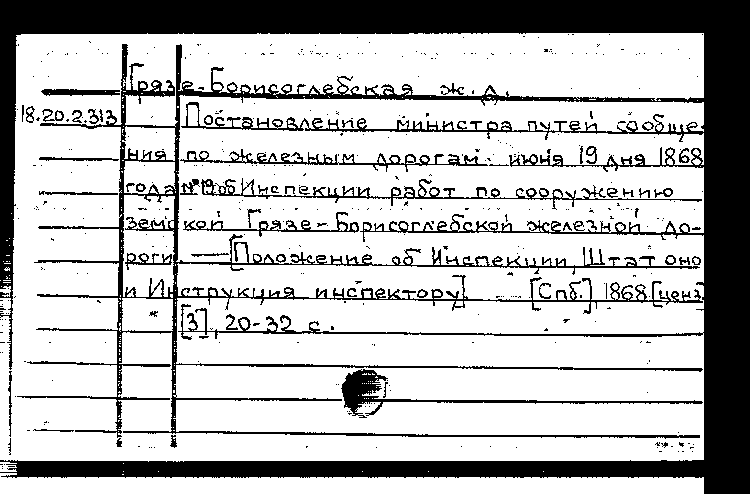 Грязе-Борисоглебская ж. д.
18.20.2.313 Постановление министра путей сообще
ния по железным дорогам июня 19 дня 1868
года №19 об Инспекции работ по сооружению
земской Грязе-Борисоглебской железной до-
роги. — [Положение об Инспекции, Штат оно
и Инструкция инспектору]. — [Спб.], 1868 [ценз.
[3], 20-32 с.